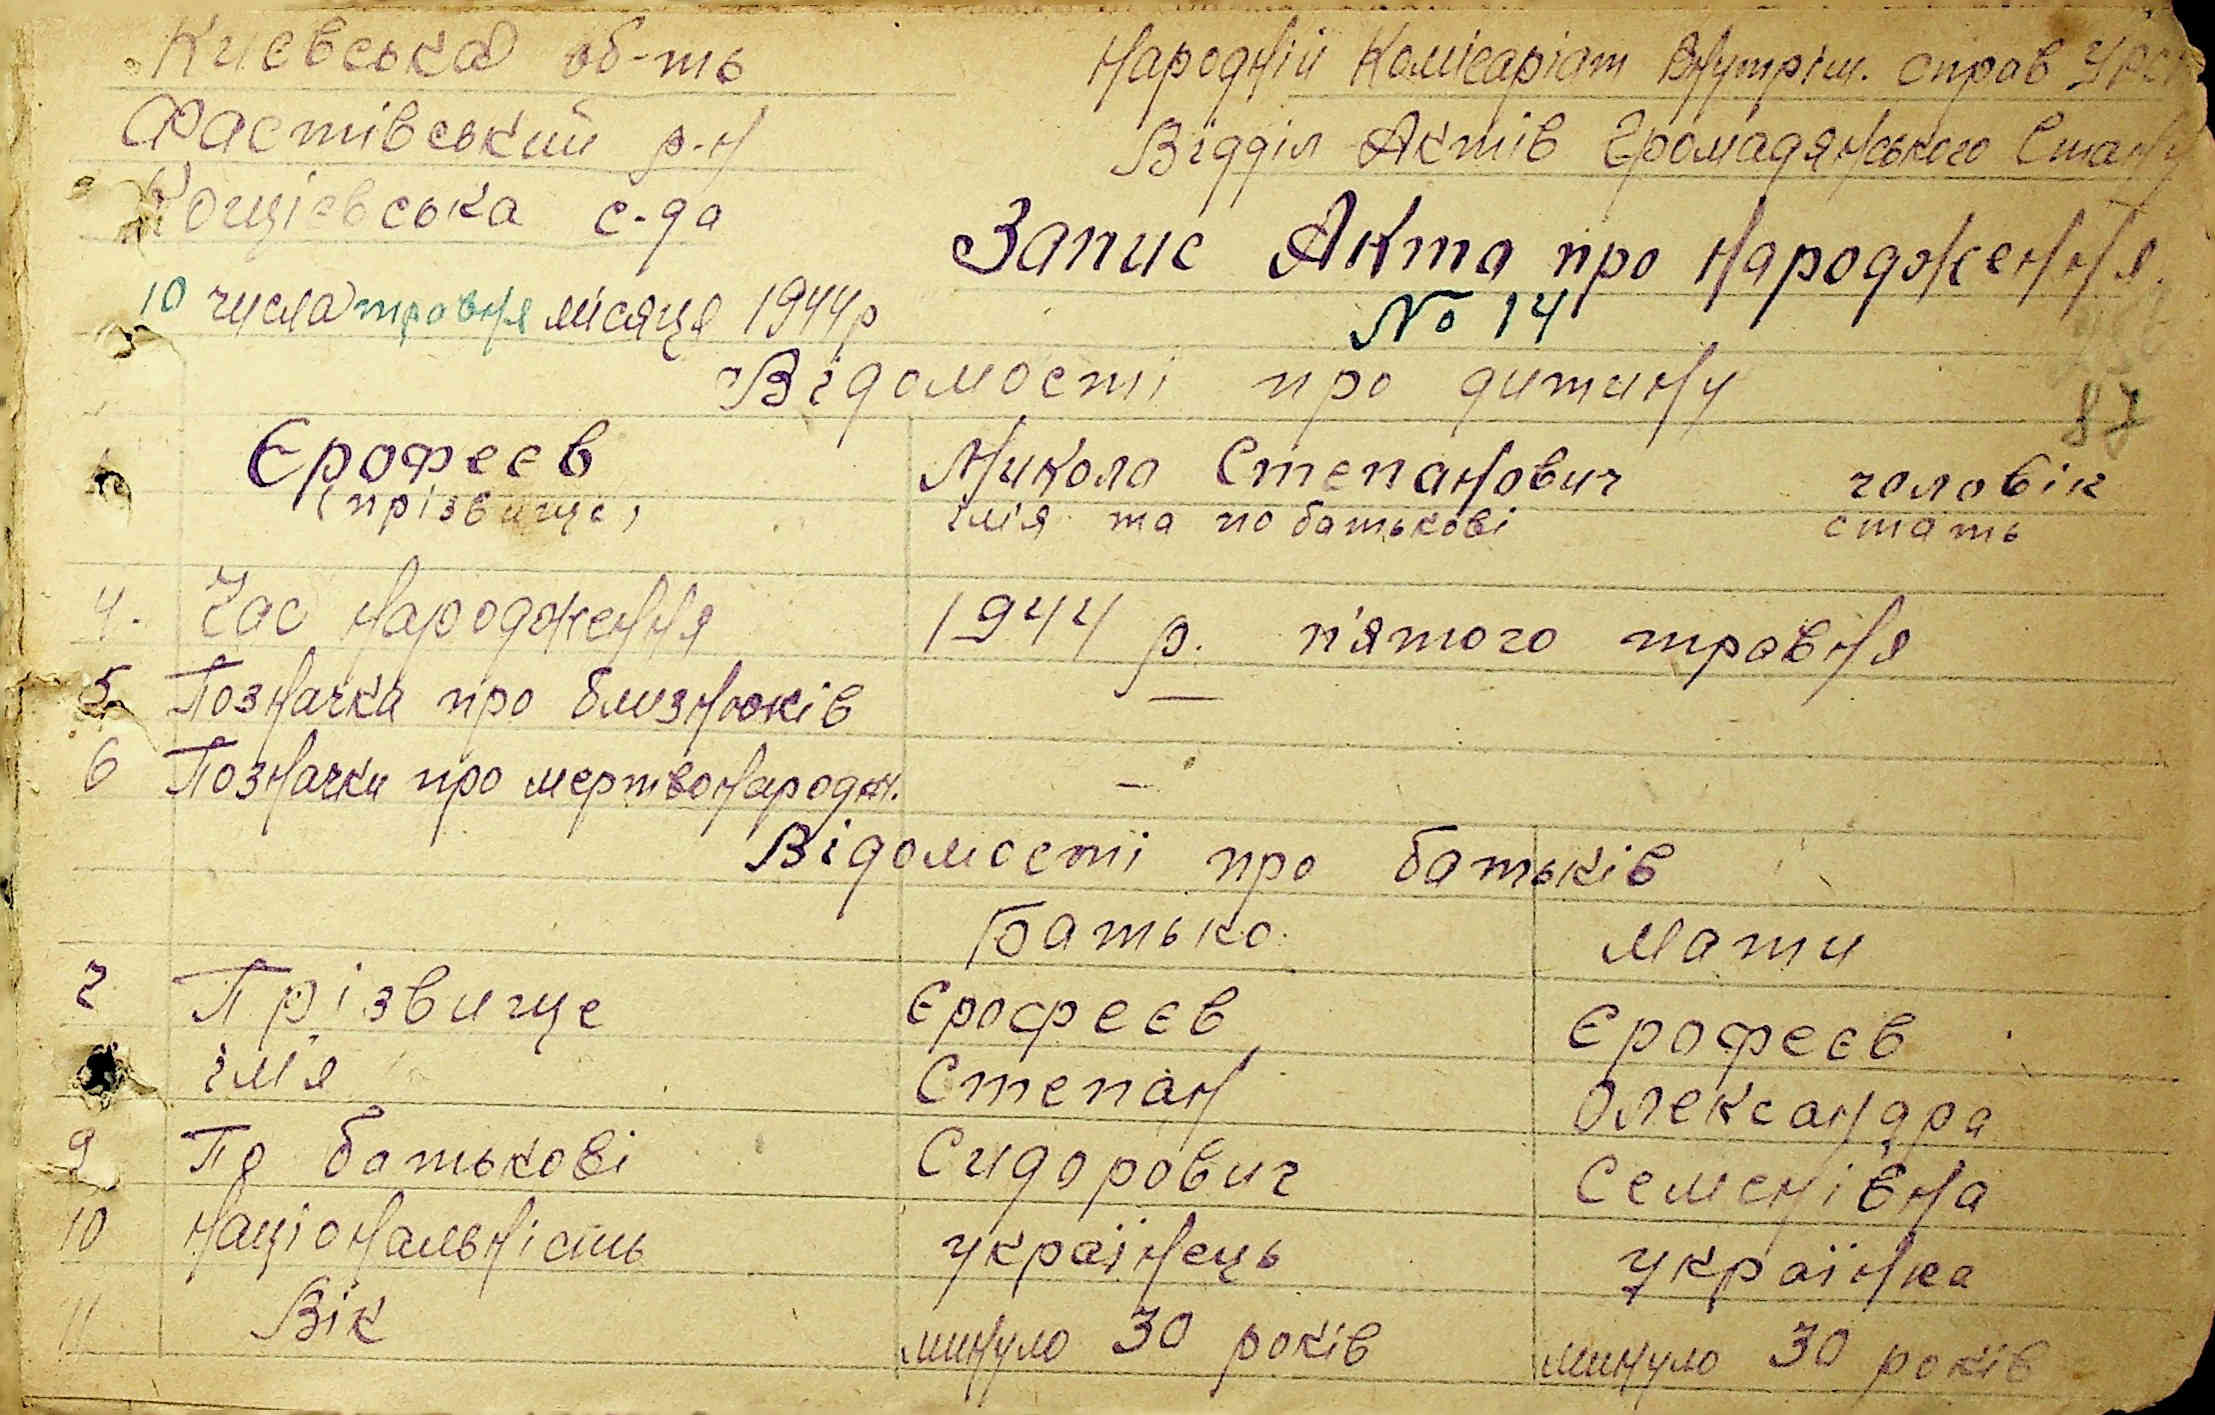 Києвська об-ть
Народній Комісаріат Внутріш. справ УРСР
Фастівський р-н
Відділ Актів Громадянського Стану
Кощіевська с-да
Запис Акта про народження
10 числа травня місяця 1944р
№ 14
Відомості про дитину
87
Єрофеєв Микола Степанович чоловік
(прізвище) імія та по батькові стать
4. Час народження 1944 р. п'ятого травня
5 Позначка про близнюків —
6 Позначки про мертвонародж. —
Відомості про батьків
Батько Мати
7 Прізвище Єрофеєв Єрофеєв
імія Степан Олександра
9 По батькові Сидорович Семенівна
10 Національність українець українка
11 Вік минуло 30 років минуло 30 років